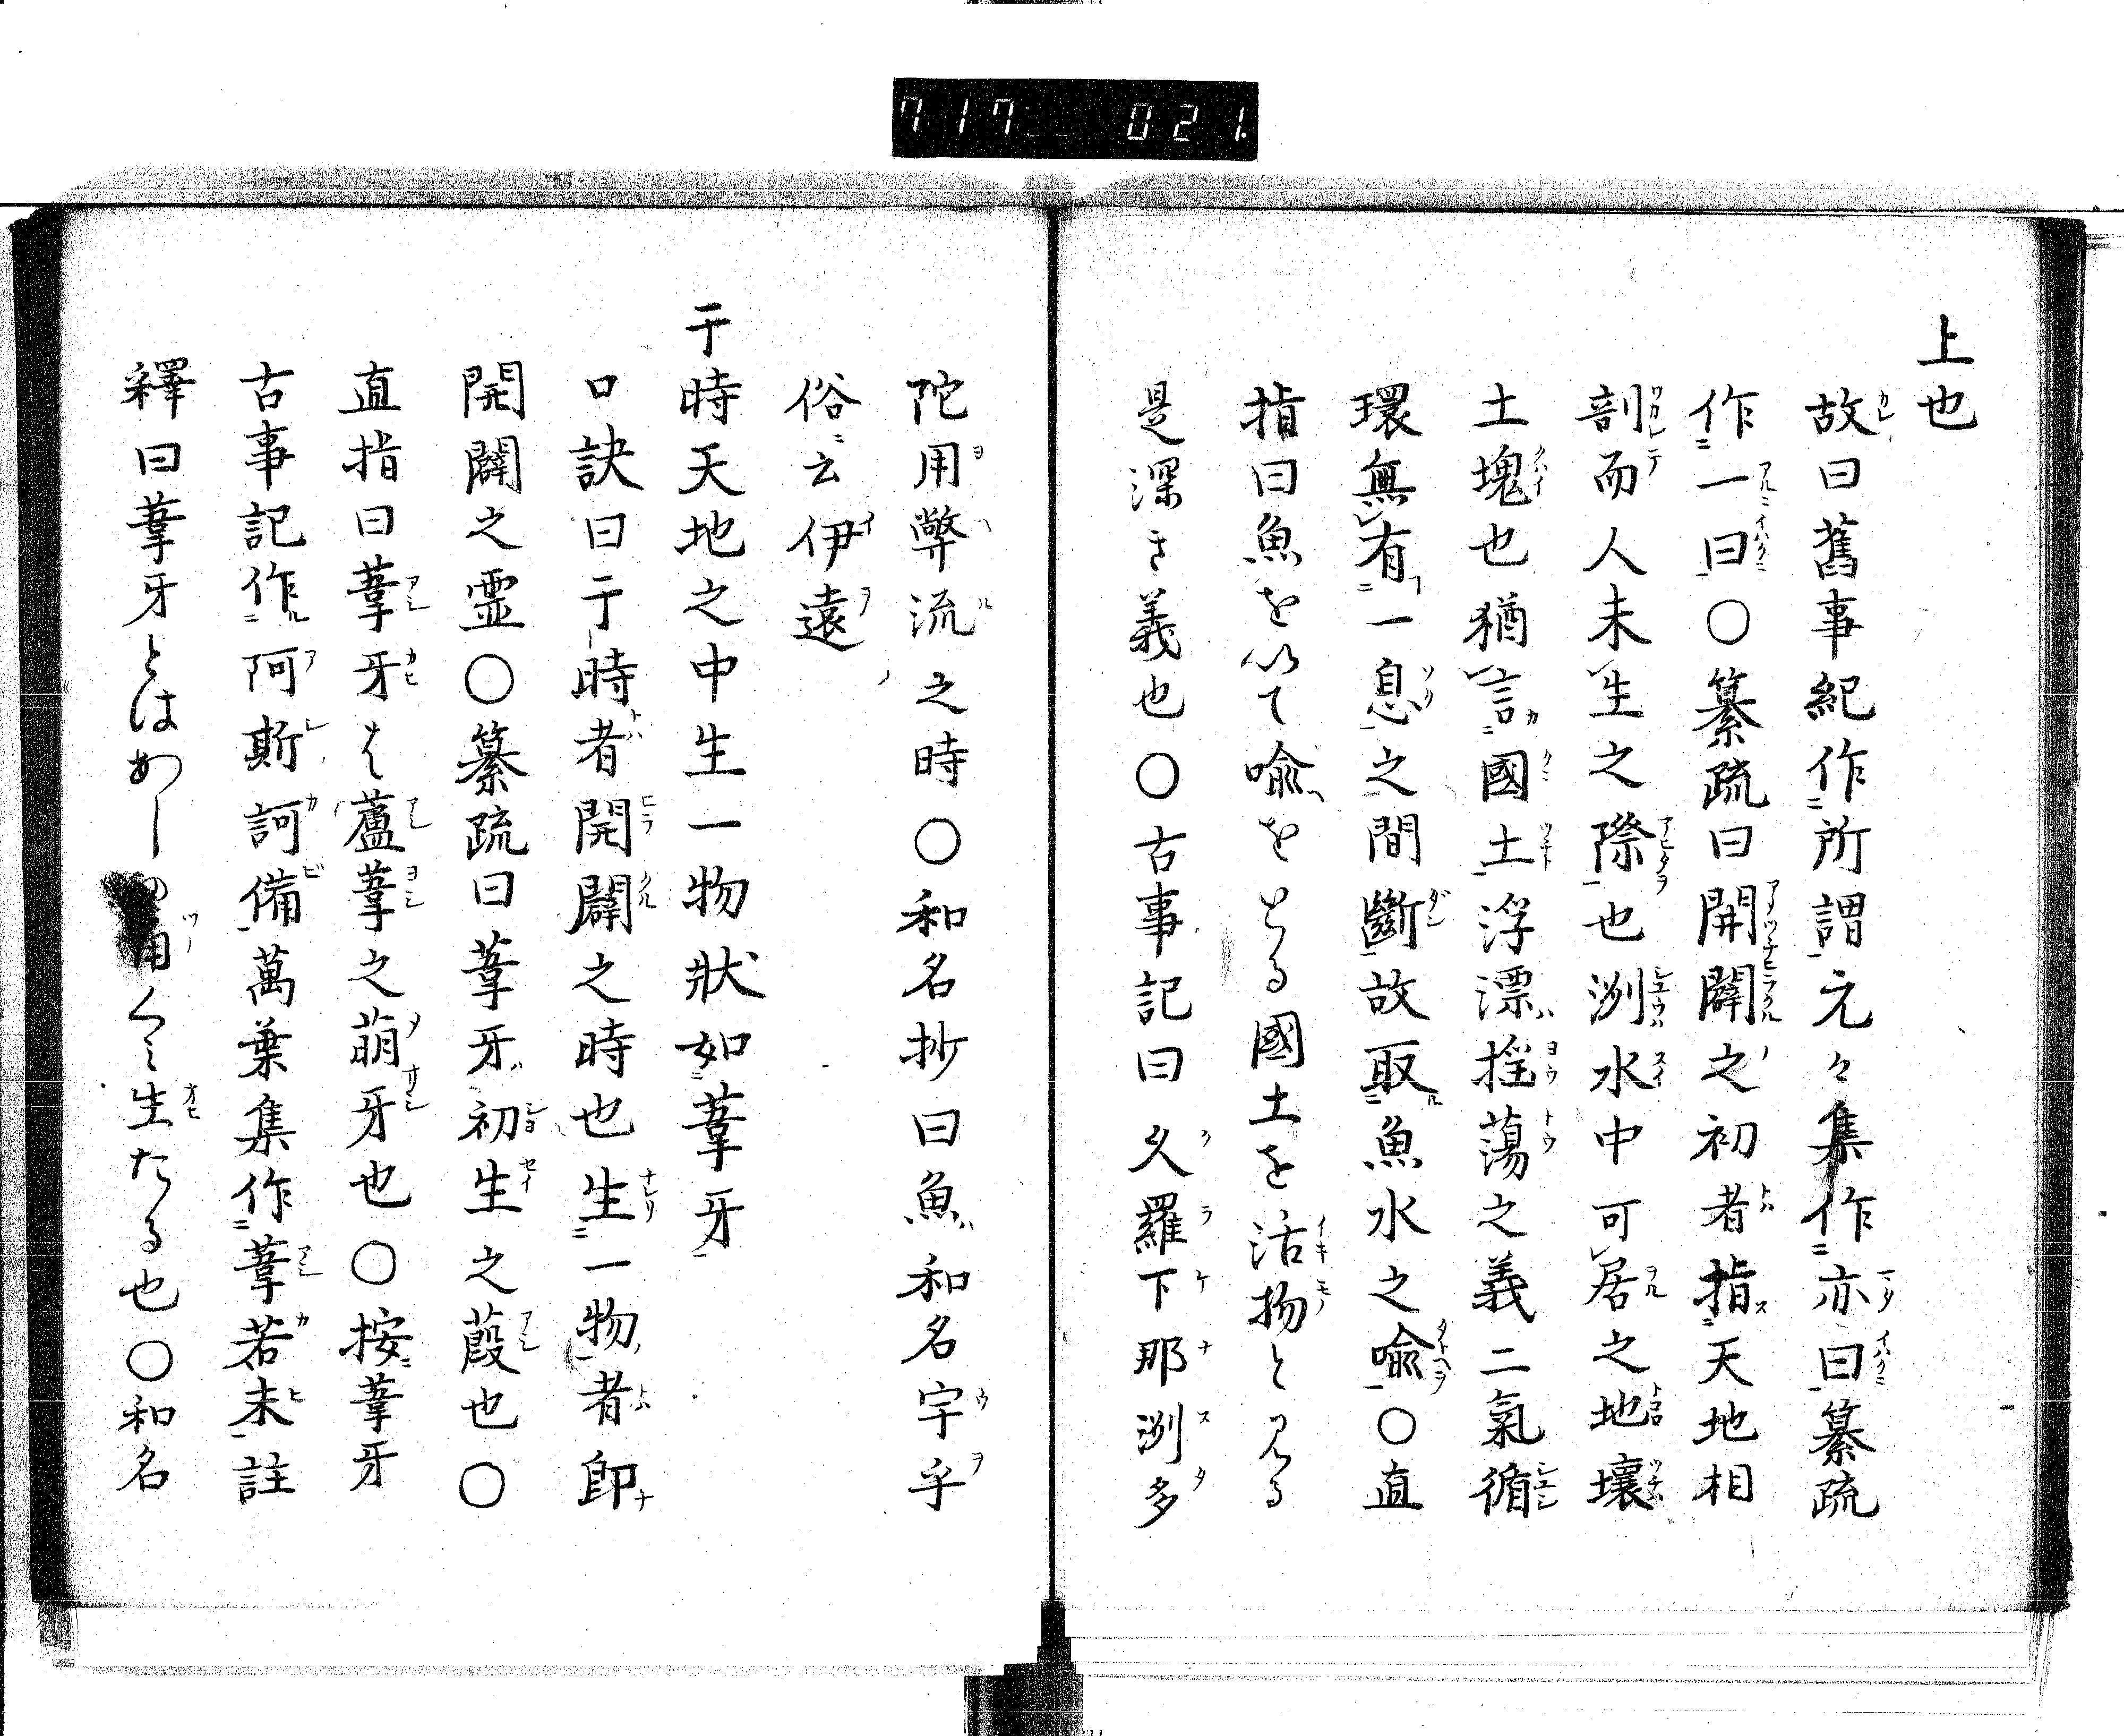 717 021.
上也
故曰舊事紀作所謂元々集作亦曰纂疏
作一曰〇纂疏曰開闢之初者指天地相
剖而人未生之際也洲水中可居之地壤
土塊也猶言國土浮漂揺蕩之義二氣循
環無有一息之間斷故取魚水之喩〇直
指曰魚を以て喩をとる國土を活物と見る
是深き義也〇古事記曰久羅下那洲多
陀用弊流之時〇和名抄曰魚和名宇乎
俗云伊遠
于時天地之中生一物狀如葦牙
口訣曰于時者開闢之時也生一物者即
開闢之霊〇纂疏曰葦牙初生之葭也〇
直指曰葦牙は蘆葦之萌牙也〇按葦牙
古事記作阿斯訶備萬葉集作葦若末註
釋曰葦牙とはあしの角くミ生たる也〇和名